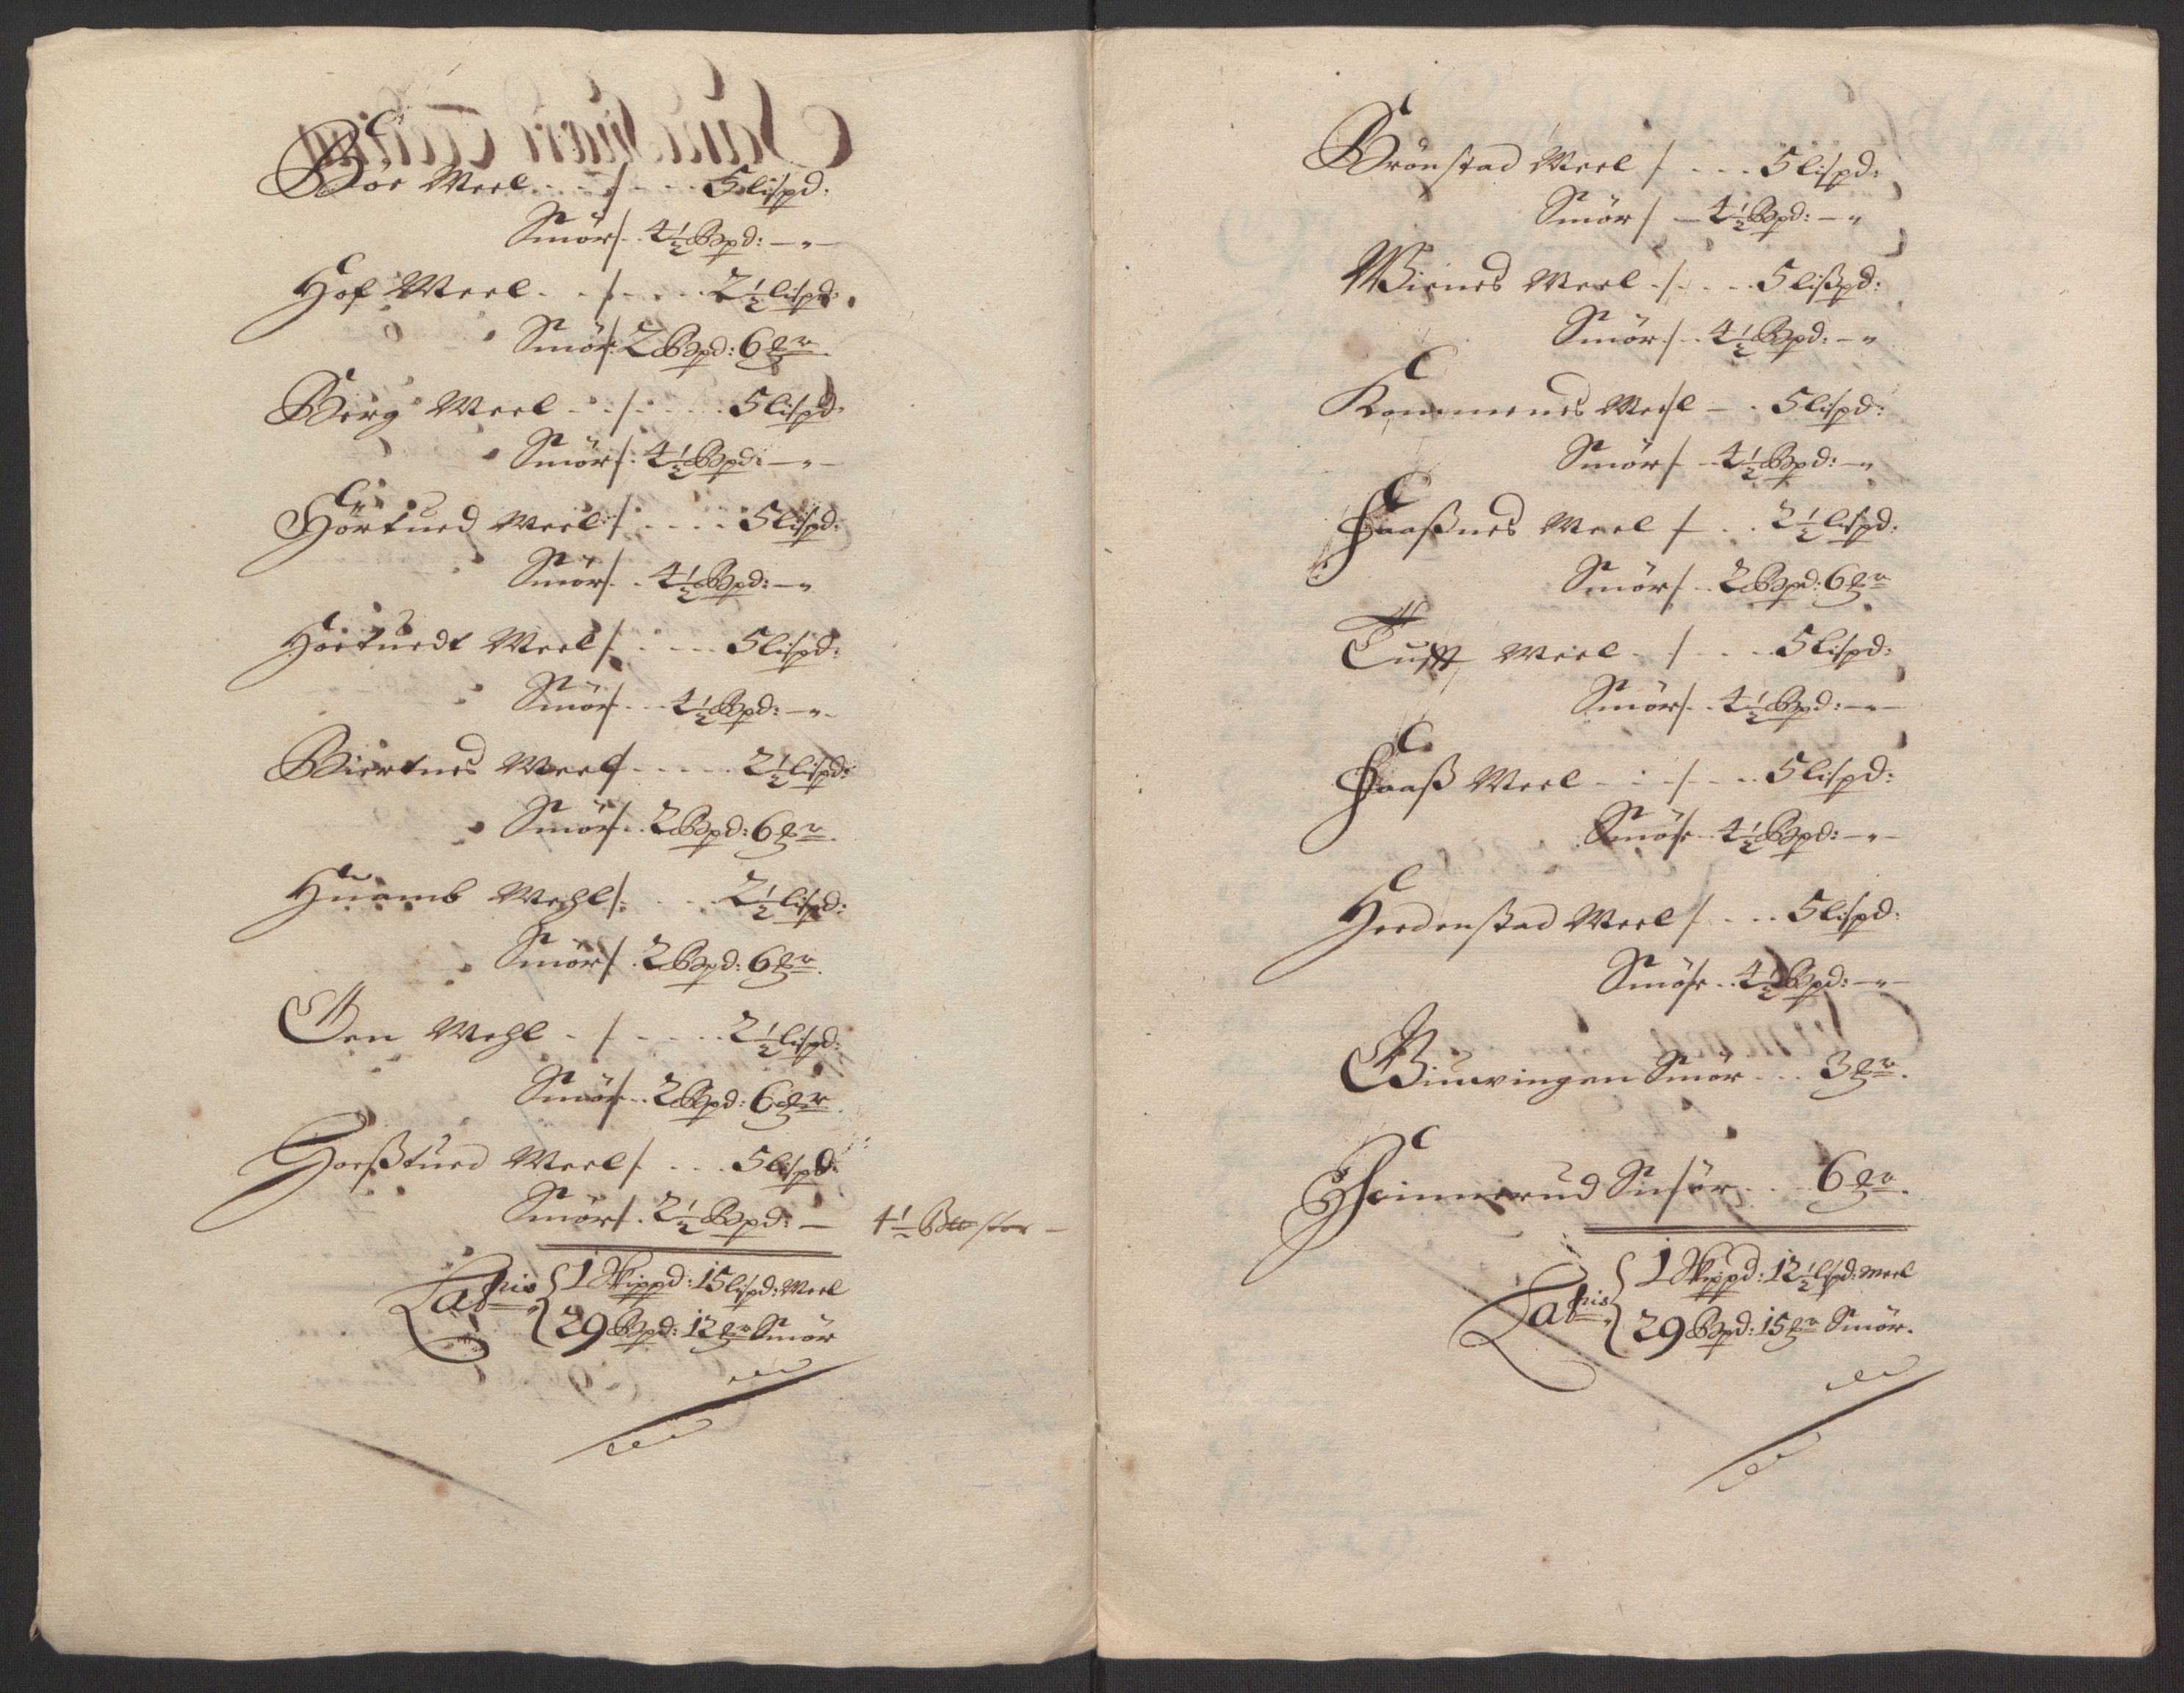 Böe Meel - - - / - - - 5 lispd:
Smör /. . 4½ Bspd: — " —
Hof Meel - - / - - - 2½ lispd:
Smör: 2 Bspd: 6 mr
Berg Meel - - / - - - 5 lispd:
Smör /: 4½ Bspd: — " —
Hörtued Meel: / - - - - 5 lispd:
Smör /. . 4½ Bspd: — "
Hörtuedt Meel / - - - - 5 lispd:
Smör - - 4½ Bspd: — " —
Biertnes Meel - - - - - 2½ lispd:
Smör - - 2 Bspd: 6 mr
Huamb Mehl / - - - 2½ lispd:
Smör / . 2 Bspd: 6 mr
Oen Mehl - / - - - - 2½ lispd:
Smör - - 2 Bspd: 6 mr
Hoeßtued Meel / . . . 5 lispd:
Smör / . 2½ Bspd: — 4½
Latris { 1 Skippd: 15 lispd: Meel
29 Bspd: 12 mr Smör
Brönstad Meel / - - - 5 lispd:
Smör / — 4½ Bspd: — "
Wienes Meel - / - - - 5 lißpd:
Smör / - . 4½ Bspd: — "
Kommenes Meel — . 5 lispd:
Smör / - - 4½ Bspd: — "
Haaßnes Meel / - - . 2½ lispd:
Smör / . . 2 Bspd: 6 mr
Tufft Meel - / - - - 5 lispd:
Smör / - . 4½ Bspd: — " —
Haaß Meel - - - / - - - 5 lispd:
Smör - - 4½ Bspd: — " —
Hedenstad Meel / - - - 5 lispd:
Smör - - 4½ Bspd: — " —
Biuvingen Smör - - - 3 mr.
Heimerud Smör - - - 6 mr.
Latris { 1 Skippd: 12½ lspd: Meel
29 Bspd: 15 mr Smör.